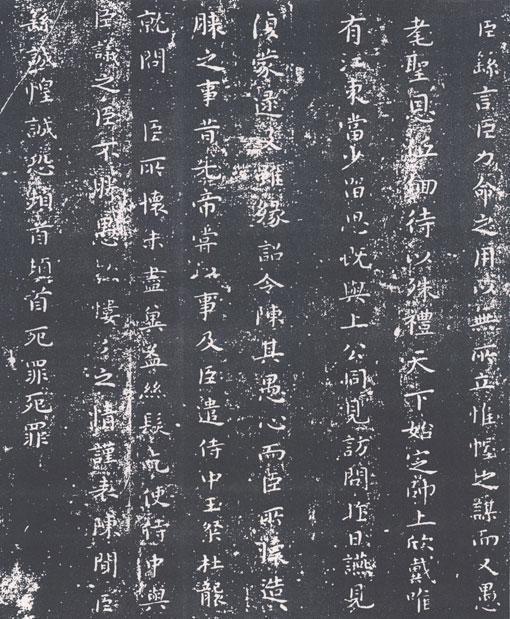 臣繇言臣力命之用以無所立惟幄之謀而又愚
耄聖恩低徊待以殊禮天下始定帥土欣戴唯
有江東當少留思既與上公同見訪問昨日讌見
復蒙逮及雖緣詔令陳其愚心而臣所懷造
膝之事昔先帝嘗以事及臣遣侍中王粲杜襲
就問 臣所懷未盡奚益絲髮乞使侍中與
臣議之臣不勝愚款慺慺之情謹表陳聞臣
繇誠惶誠恐頓首頓首死罪死罪